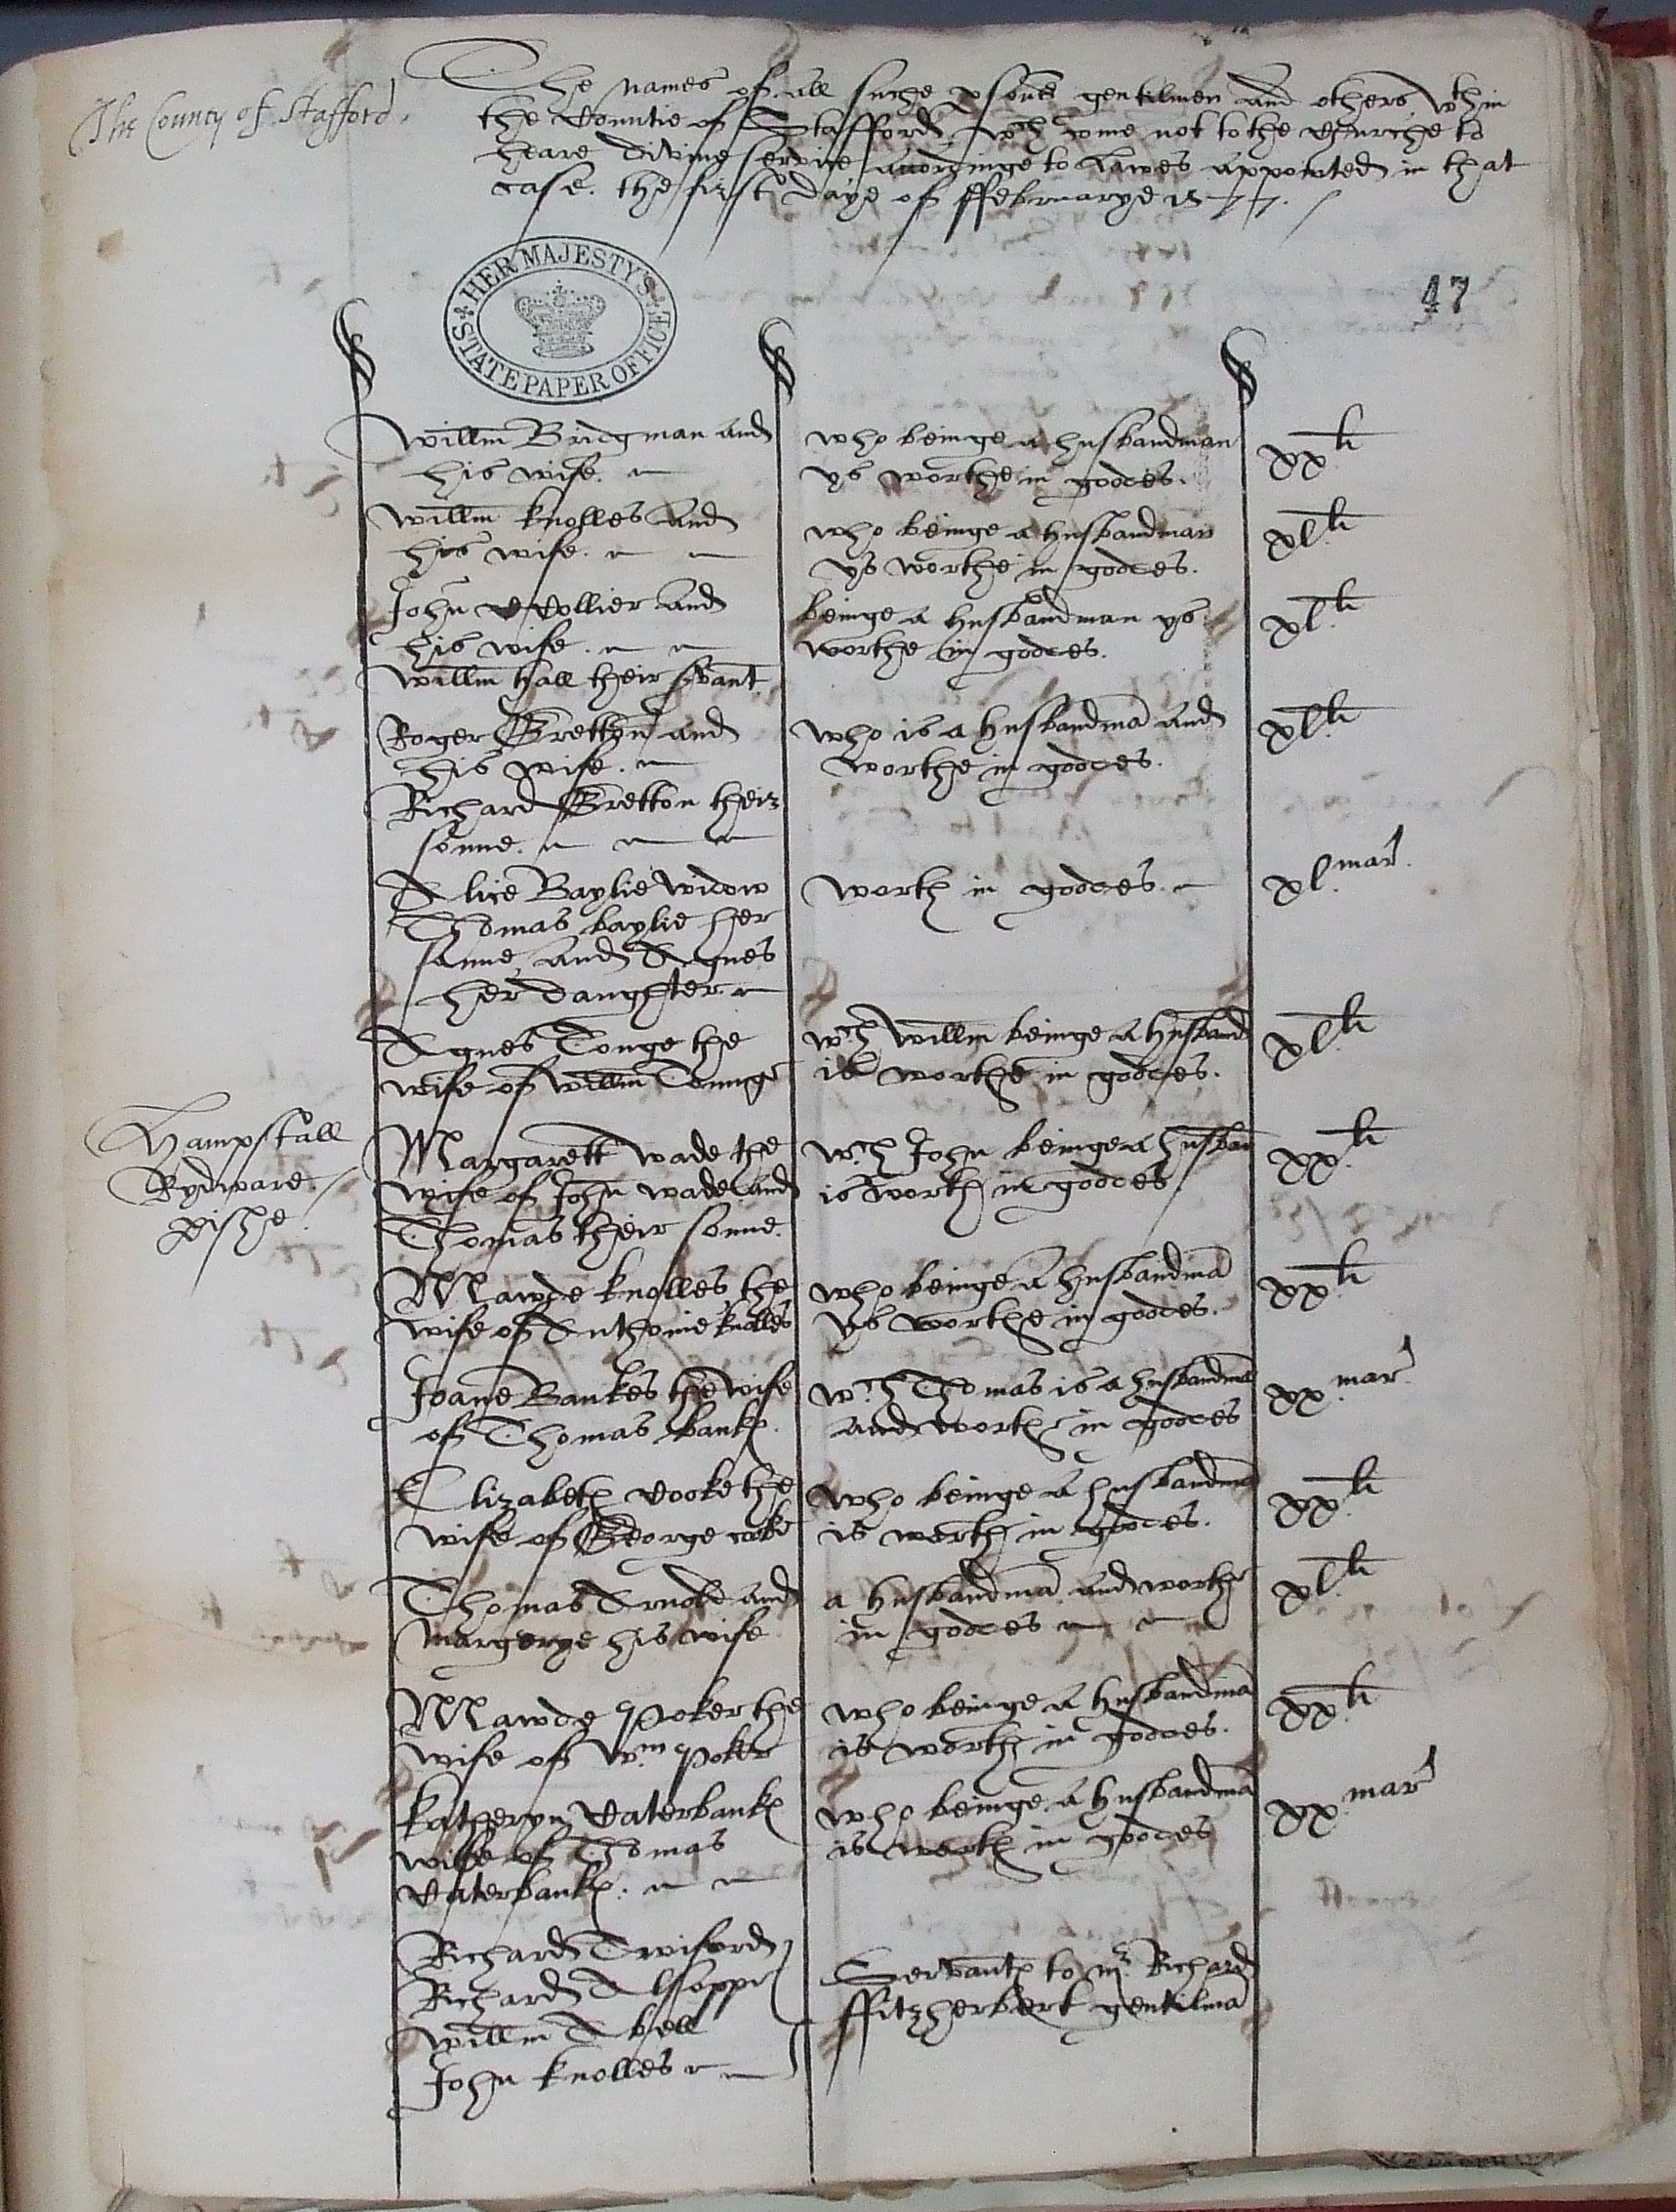 The County of Stafford.
The names of all suche psons gentilmen and others wthin
the Countie of Stafford wch come not to the Churche to
heare divine service accordinge to Lawes appointed in that
case. the first daye of ffebruarye 1577.
HER MAJESTY'S STATE PAPER OFFICE
47
Willm Bridgman and
his wife.
who beinge a husbandman
ys worthe in goodes.
xx li
Willm Knolles and
his wife.
who beinge a husbandman
ys worthe in goodes.
xl li
John Collier and
his wife.
beinge a husbandman ys
worthe in goodes.
xl li
Willm Hall their svant
Roger Gretton and
his wife.
who is a husbandma and
worthe in goodes.
xl li
Richard Gretton their
sonne.
Alice Baylie widow
Thomas baylie her
sonne and Agnes
her daughter
worth in goodes.
xl mar
Agnes Tonge the
wife of Willm Tounge
wch Willm beinge a husband
is worthe in goodes.
xl li
Hampstall
Rydware
pishe.
Margarett Wade the
wife of John Wade and
Thomas their sonne.
wch John beinge a husban
is worth in goodes
xx li
Mawde Knolles the
wife of Anthonie Knolles
who beinge a husbandma
ys worthe in goodes.
xx li
Joane Bankes the wife
of Thomas bankes.
wch Thomas is a husbandma
and worth in goodes
xx mar
Elizabeth Cooke the
wife of George cooke
who beinge a husbandma
is worth in goodes.
xx li
Thomas Arnold and
margerye his wife
a husbandma and worthe
in goodes
xl li
Mawde Poker the
wife of Wm Poker
who beinge a husbandma
is worth in goodes.
xx li
Katheryn Caterbankes
wiffe of Thomas
Caterbankes.
who beinge a husbandma
is worth in goodes
xx mar
Richard Twiford
Richard Alsoppe
Willm Abell
John Knolles
Servantes to mr Richard
ffitzherbert gentilma